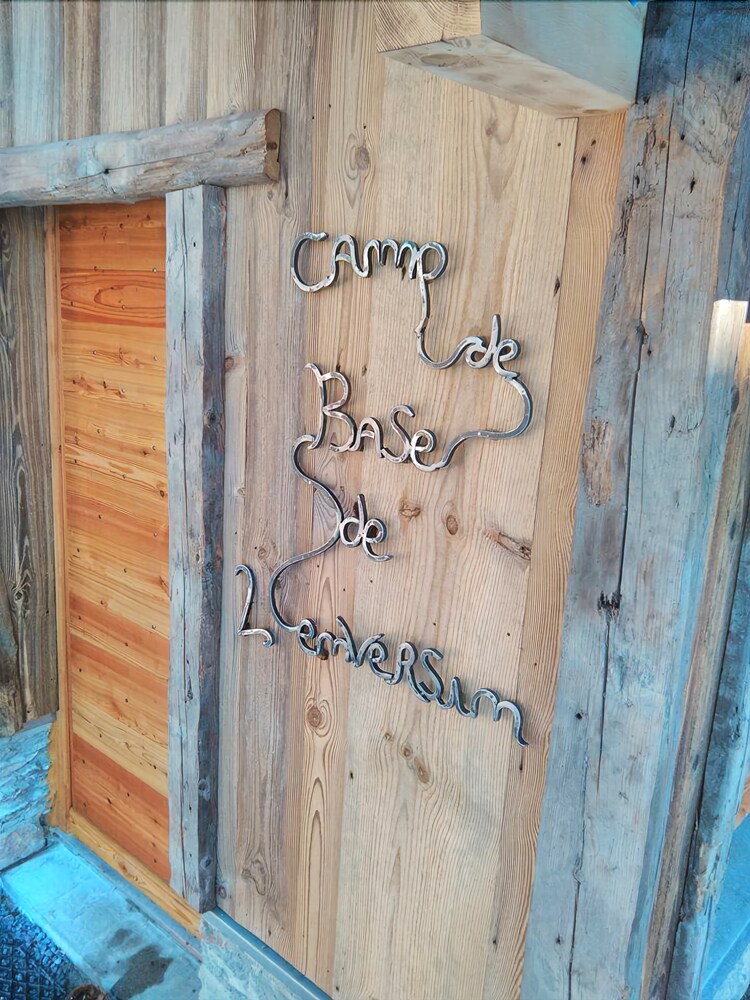 CAmp
de
BASe
de
L'enVeRSin